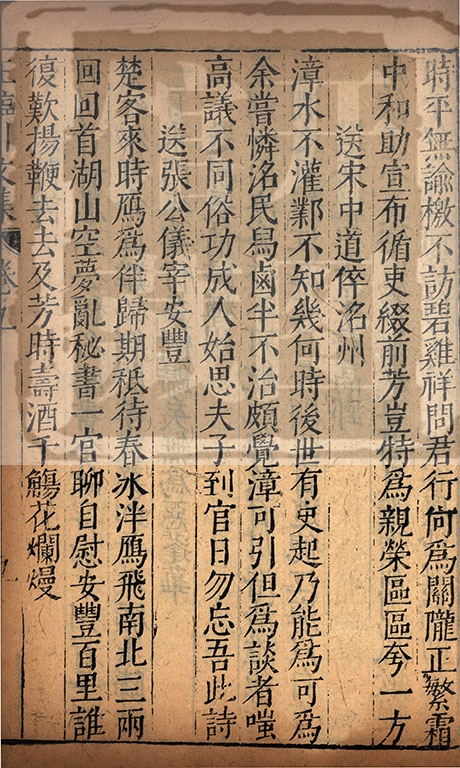 時平無諭檄不訪碧雞祥問君行何爲關隴正繁霜
中和助宣布循吏綴前芳豈特爲親榮區區夸一方
送宋中道倅洺州
漳水不灌鄴不知幾何時後世有史起乃能爲可爲
余嘗憐洺民舄鹵半不治頗覺漳可引但爲談者嗤
高議不同俗功成人始思夫子到官日勿忘吾此詩
送張公儀宰安豐
楚客來時鴈爲伴歸期秪待春冰泮鴈飛南北三兩
回回首湖山空夢亂秘書一官聊自慰安豐百里誰
復歎揚鞭去去及芳時壽酒千觴花爛熳
王臨川文集 卷九